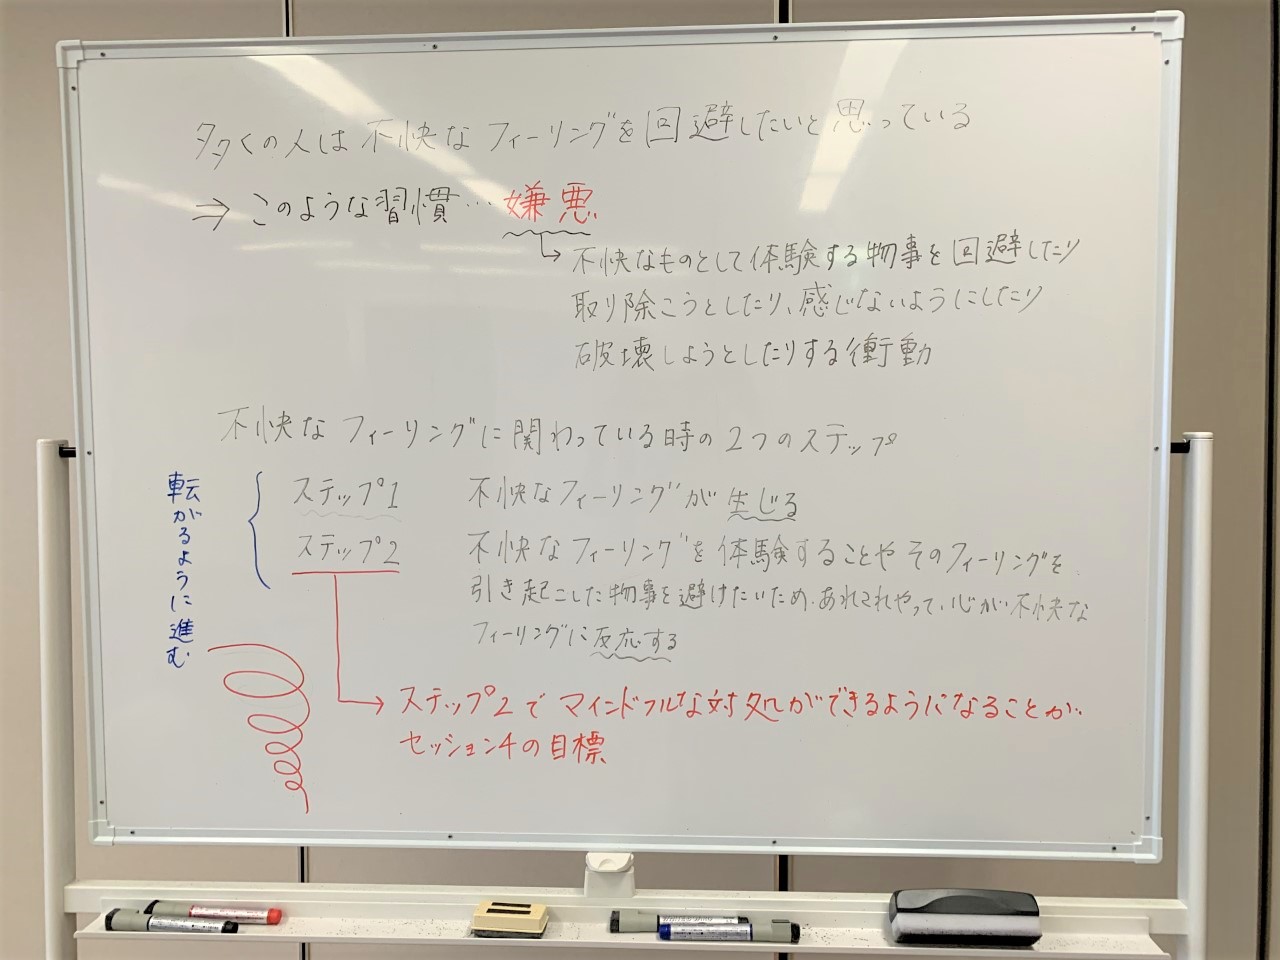 多くの人は不快なフィーリングを回避したいと思っている
⇒ このような習慣… 嫌悪
不快なものとして体験する物事を回避したり
取り除こうとしたり、感じないようにしたり
破壊しようとしたりする衝動
不快なフィーリングに関わっている時の2つのステップ
転がるように進む
ステップ1 不快なフィーリングが生じる
ステップ2 不快なフィーリングを体験することやそのフィーリングを
引き起こした物事を避けたいため、あれこれやって、心が不快な
フィーリングに反応する
ステップ2でマインドフルな対処ができるようになることが
セッション4の目標